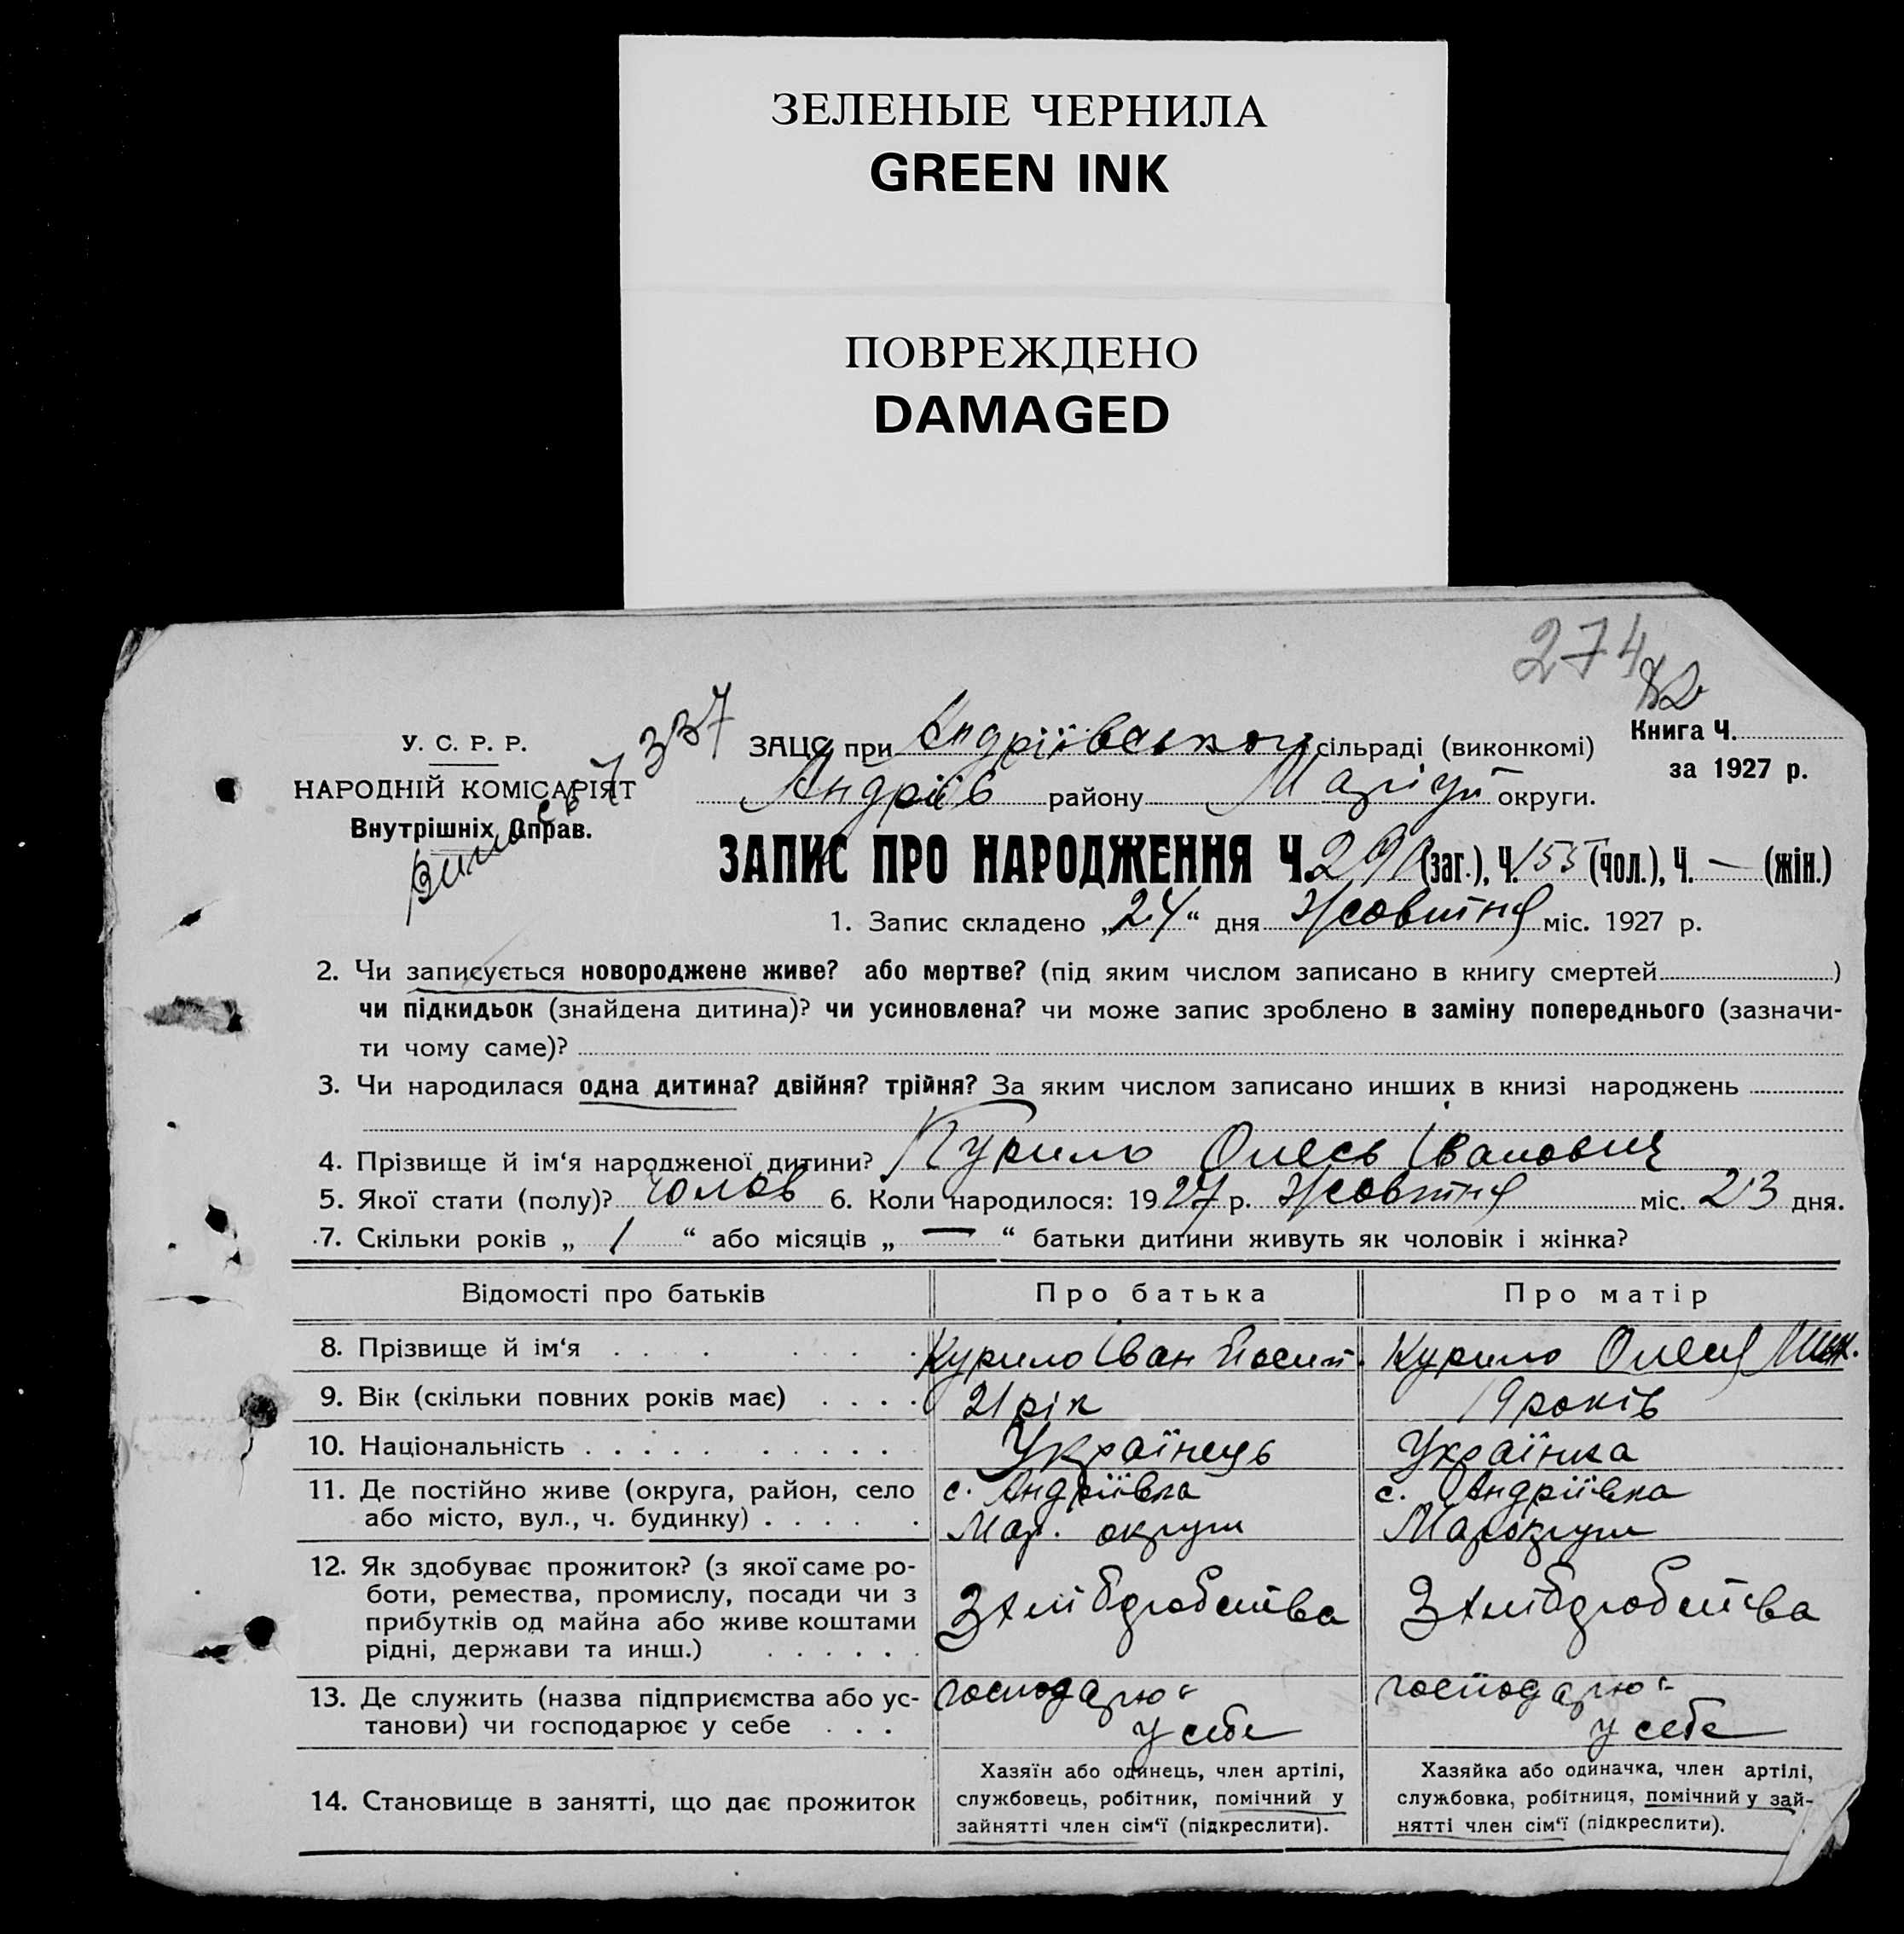 ЗЕЛЕНЫЕ ЧЕРНИЛА
GREEN INK
ПОВРЕЖДЕНО
DAMAGED
274
82
337
У. С. Р. Р.
НАРОДНІЙ КОМІСАРІЯТ
Внутрішніх Справ.
ЗАЦС при Андріївській сільраді (виконкомі)
Книга Ч.
за 1927 р.
Андріїв району Маріуп округи.
ЗАПИС ПРО НАРОДЖЕННЯ Ч. (заг.), Ч. 155 (чол.), Ч. — (жін.)
1. Запис складено „24“ дня Жовтня міс. 1927 р.
2. Чи записується новороджене живе? або мертве? (під яким числом записано в книгу смертей )
чи підкидьок (знайдена дитина)? чи усиновлена? чи може запис зроблено в заміну попереднього (зазначи-
ти чому саме)?
3. Чи народилася одна дитина? двійня? трійня? За яким числом записано инших в книзі народжень
4. Прізвище й ім‘я народженої дитини? Курило Олесь Іванович
5. Якої стати (полу)? чолов 6. Коли народилося: 1927 р. Жовтня міс. 23 дня.
7. Скільки років „ 1 “ або місяців „ — “ батьки дитини живуть як чоловік і жінка?
Відомості про батьків Про батька Про матір
8. Прізвище й ім‘я Курило Іван Йосип. Курило Олеся
9. Вік (скільки повних років має) 21 рік 19 років
10. Національність Українець Українка
11. Де постійно живе (округа, район, село с. Андріївка с. Андріївка
або місто, вул., ч. будинку) Мар. округи Мар округи
12. Як здобуває прожиток? (з якої саме ро-
боти, ремества, промислу, посади чи з З хліборобства З хліборобства
прибутків од майна або живе коштами
рідні, держави та инш.)
13. Де служить (назва підприємства або ус- господарює господарює
танови) чи господарює у себе у себе у себе
Хазяїн або одинець, член артілі, Хазяйка або одиначка, член артілі,
14. Становище в занятті, що дає прожиток службовець, робітник, помічний у службовка, робітниця, помічний у зай-
зайнятті член сім‘ї (підкреслити). нятті член сім‘ї (підкреслити).